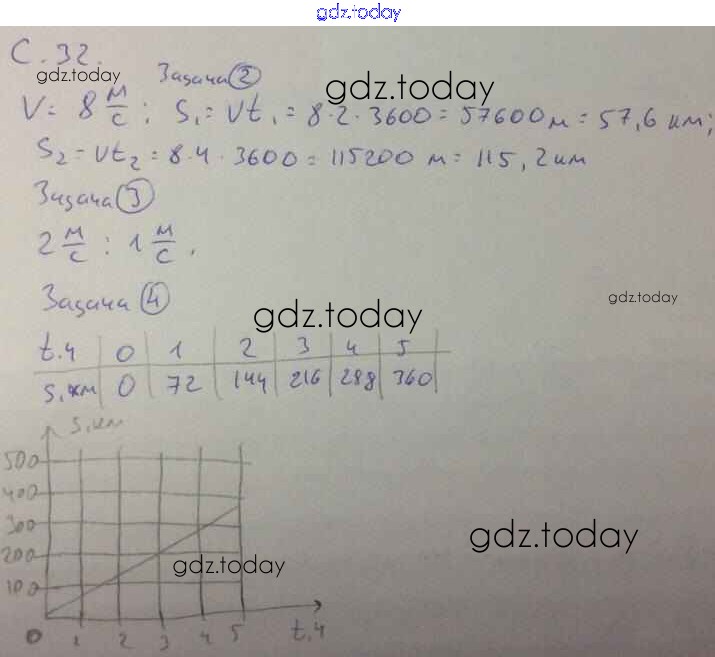 gdz.today
С. 32.
gdz.today
Задача ②
gdz.today
V = 8 м/с ; S₁ = Vt₁ = 8 · 2 · 3600 = 57600 м = 57,6 км;
S₂ = Vt₂ = 8 · 4 · 3600 = 115200 м = 115,2 км
Задача ③
2 м/с ; 1 м/с .
gdz.today
Задача ④
gdz.today
t.ч 0 1 2 3 4 5
S,км 0 72 144 216 288 360
S,км
500
400
300
200
100
gdz.today
gdz.today
0 1 2 3 4 5 t.ч